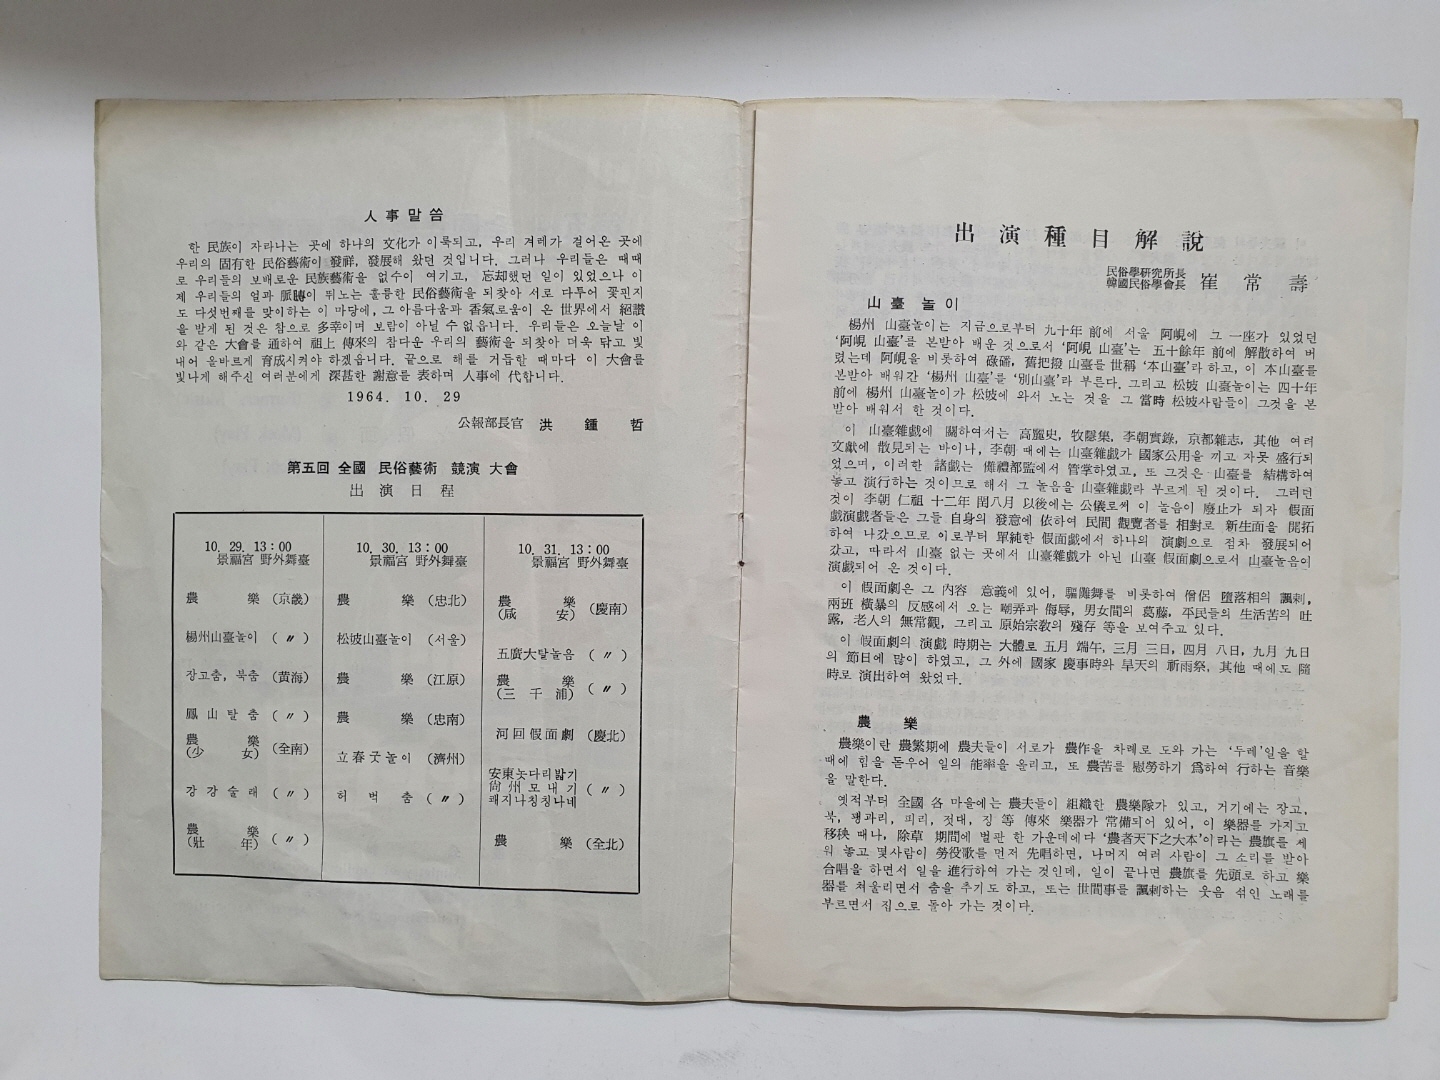 人事말씀
한 民族이 자라나는 곳에 하나의 文化가 이룩되고, 우리 겨레가 걸어온 곳에
우리의 固有한 民俗藝術이 發祥, 發展해 왔던 것입니다. 그러나 우리들은 때때
로 우리들의 보배로운 民族藝術을 없수이 여기고, 忘却했던 일이 있었으나 이
제 우리들의 얼과 脈膊이 뛰노는 훌륭한 民俗藝術을 되찾아 서로 다투어 꽃핀지
도 다섯번째를 맞이하는 이 마당에, 그 아름다움과 香氣로움이 온 世界에서 絕讚
을 받게 된 것은 참으로 多幸이며 보람이 아닐 수 없읍니다. 우리들은 오늘날 이
와 같은 大會를 通하여 祖上 傳來의 참다운 우리의 藝術을 되찾아 더욱 닦고 빛
내어 올바르게 育成시켜야 하겠읍니다. 끝으로 해를 거듭할 때마다 이 大會를
빛나게 해주신 여러분에게 深甚한 謝意를 表하며 人事에 代합니다.
1964. 10. 29
公報部長官 洪鍾哲
第五回 全國 民俗藝術 競演 大會
出演日程
10. 29. 13：00
景福宮 野外舞臺
農樂 (京畿)
楊州山臺놀이 (〃)
장고춤, 북춤 (黃海)
鳳山탈춤 (〃)
農樂
(少女) (全南)
강강술래 (〃)
農樂
(壯年) (〃)
10. 30. 13：00
景福宮 野外舞臺
農樂 (忠北)
松坡山臺놀이 (서울)
農樂 (江原)
農樂 (忠南)
立春굿놀이 (濟州)
허벅춤 (〃)
10. 31. 13：00
景福宮 野外舞臺
農樂
(咸安) (慶南)
五廣大탈놀음 (〃)
農樂
(三千浦) (〃)
河回假面劇 (慶北)
安東놋다리밟기
尙州모내기 (〃)
쾌지나칭칭나네
農樂 (全北)
出演種目解說
民俗學硏究所長
韓國民俗學會長 崔常壽
山臺놀이
楊州 山臺놀이는 지금으로부터 九十年 前에 서울 阿峴에 그 一座가 있었던
‘阿峴 山臺’를 본받아 배운 것으로서 ‘阿峴 山臺’는 五十餘年 前에 解散하여 버
렸는데 阿峴을 비롯하여 碌磻, 舊把撥 山臺를 世稱 ‘本山臺’라 하고, 이 本山臺를
본받아 배워간 ‘楊州 山臺’를 ‘別山臺’라 부른다. 그리고 松坡 山臺놀이는 四十年
前에 楊州 山臺놀이가 松坡에 와서 노는 것을 그 當時 松坡사람들이 그것을 본
받아 배워서 한 것이다.
이 山臺雜戱에 關하여서는 高麗史, 牧隱集, 李朝實錄, 京都雜志, 其他 여러
文獻에 散見되는 바이나, 李朝 때에는 山臺雜戱가 國家公用을 끼고 자못 盛行되
었으며, 이러한 諸戱는 儺禮都監에서 管掌하였고, 또 그것은 山臺를 結構하여
놓고 演行하는 것이므로 해서 그 놀음을 山臺雜戱라 부르게 된 것이다. 그러던
것이 李朝 仁祖 十二年 閏八月 以後에는 公儀로써 이 놀음이 廢止가 되자 假面
戱演戱者들은 그들 自身의 發意에 依하여 民間 觀覽者를 相對로 新生面을 開拓
하여 나갔으므로 이로부터 單純한 假面戱에서 하나의 演劇으로 점차 發展되어
갔고, 따라서 山臺 없는 곳에서 山臺雜戱가 아닌 山臺 假面劇으로서 山臺놀음이
演戱되어 온 것이다.
이 假面劇은 그 內容 意義에 있어, 驅儺舞를 비롯하여 僧侶 墮落相의 諷刺,
兩班 橫暴의 反感에서 오는 嘲弄과 侮辱, 男女間의 葛藤, 平民들의 生活苦의 吐
露, 老人의 無常觀, 그리고 原始宗敎의 殘存 等을 보여주고 있다.
이 假面劇의 演戱 時期는 大體로 五月 端午, 三月 三日, 四月 八日, 九月 九日
의 節日에 많이 하였고, 그 外에 國家 慶事時와 旱天의 祈雨祭, 其他 때에도 隨
時로 演出하여 왔었다.
農樂
農樂이란 農繁期에 農夫들이 서로가 農作을 차례로 도와 가는 ‘두레’일을 할
때에 힘을 돋우어 일의 能率을 올리고, 또 農苦를 慰勞하기 爲하여 行하는 音樂
을 말한다.
옛적부터 全國 各 마을에는 農夫들이 組織한 農樂隊가 있고, 거기에는 장고,
북, 꽹과리, 피리, 젓대, 징 等 傳來 樂器가 常備되어 있어, 이 樂器를 가지고
移秧 때나, 除草 期間에 벌판 한 가운데에다 ‘農者天下之大本’이라는 農旗를 세
워 놓고 몇사람이 勞役歌를 먼저 先唱하면, 나머지 여러 사람이 그 소리를 받아
合唱을 하면서 일을 進行하여 가는 것인데, 일이 끝나면 農旗를 先頭로 하고 樂
器를 쳐울리면서 춤을 추기도 하고, 또는 世間事를 諷刺하는 웃음 섞인 노래를
부르면서 집으로 돌아 가는 것이다.